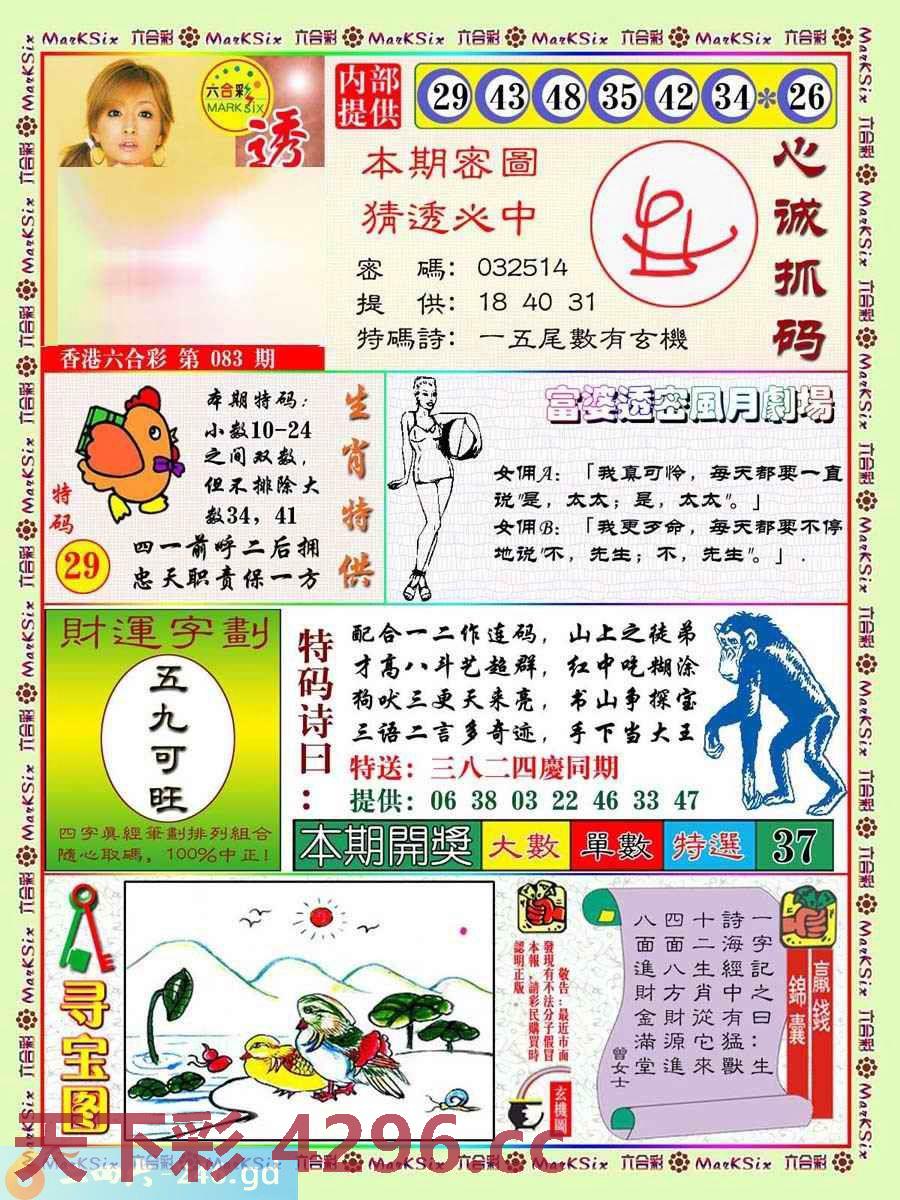 MarKSix 六合彩 MarKSix 六合彩 MarKSix 六合彩 MarKSix 六合彩 MarKSix 六合彩
六合彩
MARK SIX
透
内部
提供
29 43 48 35 42 34 * 26
本期密圖
猜透必中
密 碼: 032514
提 供: 18 40 31
特碼詩: 一五尾數有玄機
心诚抓码
香港六合彩 第 083 期
本期特码:
小数10-24
之间双数,
但不排除大
数34, 41
特码
29
四一前呼二后拥
忠天职责保一方
生肖特供
富婆透密風月劇場
女佣A: 「我真可怜, 每天都要一直
说"是, 太太; 是, 太太"。」
女佣B: 「我更歹命, 每天都要不停
地说"不, 先生; 不, 先生"。」.
財運字劃
五九可旺
四字真經筆劃排列組合
隨心取碼, 100%中正!
特码诗曰:
配合一二作连码, 山上之徒弟
才高八斗艺超群, 红中吃糊涂
狗吠三更天来亮, 书山争探宝
三语二言多奇迹, 手下当大王
特送: 三八二四慶同期
提供: 06 38 03 22 46 33 47
本期開獎 大數 單數 特選 37
寻宝图
敬告:最近市面
發現有不法分子假冒
本報,請彩民購買時
認明正版。
玄機圖
一字記之曰:生
詩海經中有猛獸
十二生肖從它來
四面八方財源進
八面進財金滿堂
曾女士
贏錢
錦囊
天下彩 4296.cc
MarKSix 六合彩 MarKSix 六合彩 MarKSix 六合彩 MarKSix 六合彩